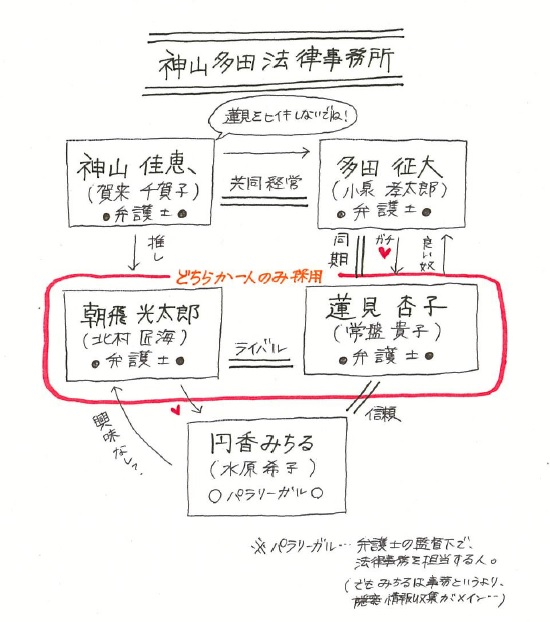 神山多田法律事務所
蓮見をヒイキしないでね!
神山 佳恵
(賀来 千賀子)
●弁護士●
共同経営
多田 征大
(小泉 孝太郎)
●弁護士●
推し
同期
ガチ
良い奴
どちらか一人のみ採用
朝飛 光太郎
(北村 匠海)
●弁護士●
ライバル
蓮見 杏子
(常盤 貴子)
●弁護士●
興味なしっ、
信頼
円香みちる
(水原 希子)
○パラリーガル○
※パラリーガル…弁護士の監督下で、
法律事務を担当する人。
(でもみちるは事務というより、
情報収集がメイン…)